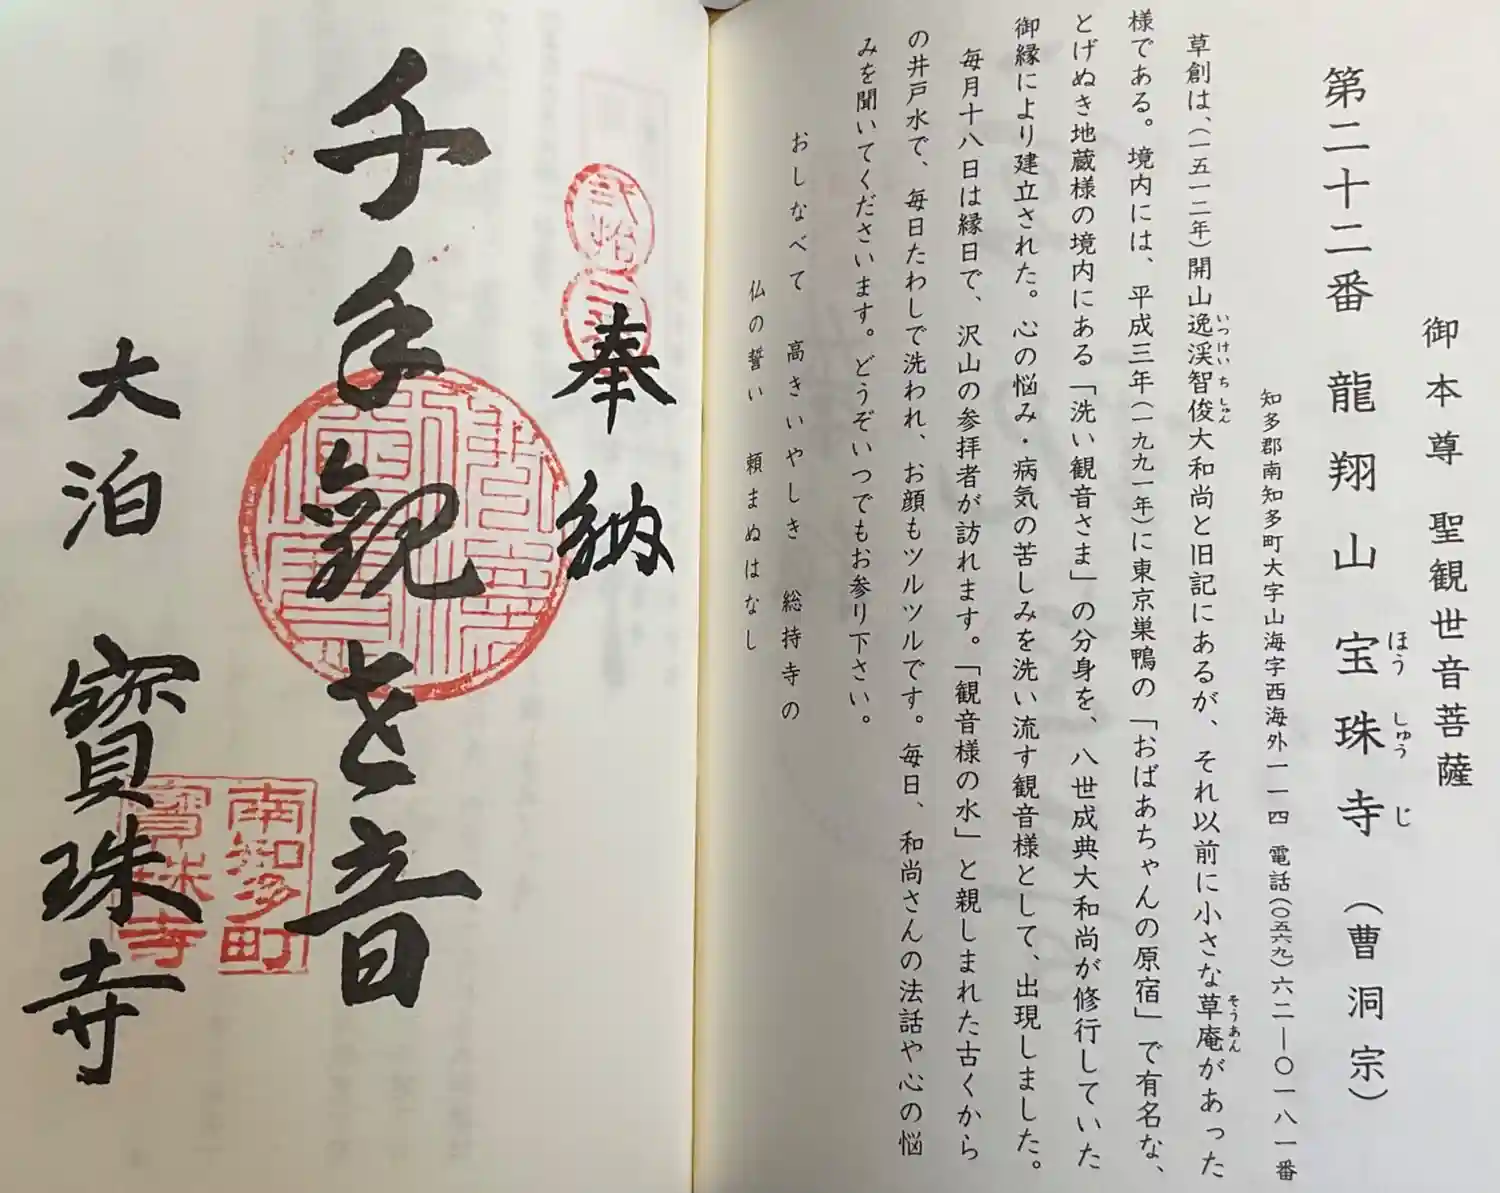 御本尊 聖観世音菩薩
第二十二番 龍翔山 宝珠寺 (曹洞宗)
ほう しゅう じ
知多郡南知多町大字山海字西海外一一四 電話(〇五六九)六二―〇一八一番
草創は、(一五一二年)開山逸渓智俊大和尚と旧記にあるが、それ以前に小さな草庵があった
いつけい ち しゅん
そうあん
様である。境内には、平成三年(一九九一年)に東京巣鴨の「おばあちゃんの原宿」で有名な、
とげぬき地蔵様の境内にある「洗い観音さま」の分身を、八世成典大和尚が修行していた
御縁により建立された。心の悩み・病気の苦しみを洗い流す観音様として、出現しました。
毎月十八日は縁日で、沢山の参拝者が訪れます。「観音様の水」と親しまれた古くから
の井戸水で、毎日たわしで洗われ、お顔もツルツルです。毎日、和尚さんの法話や心の悩
みを聞いてくださいます。どうぞいつでもお参り下さい。
おしなべて 高きいやしき 総持寺の
仏の誓い 頼まぬはなし
奉納
千手観世音
大泊 寳珠寺
南知多町
寳珠寺